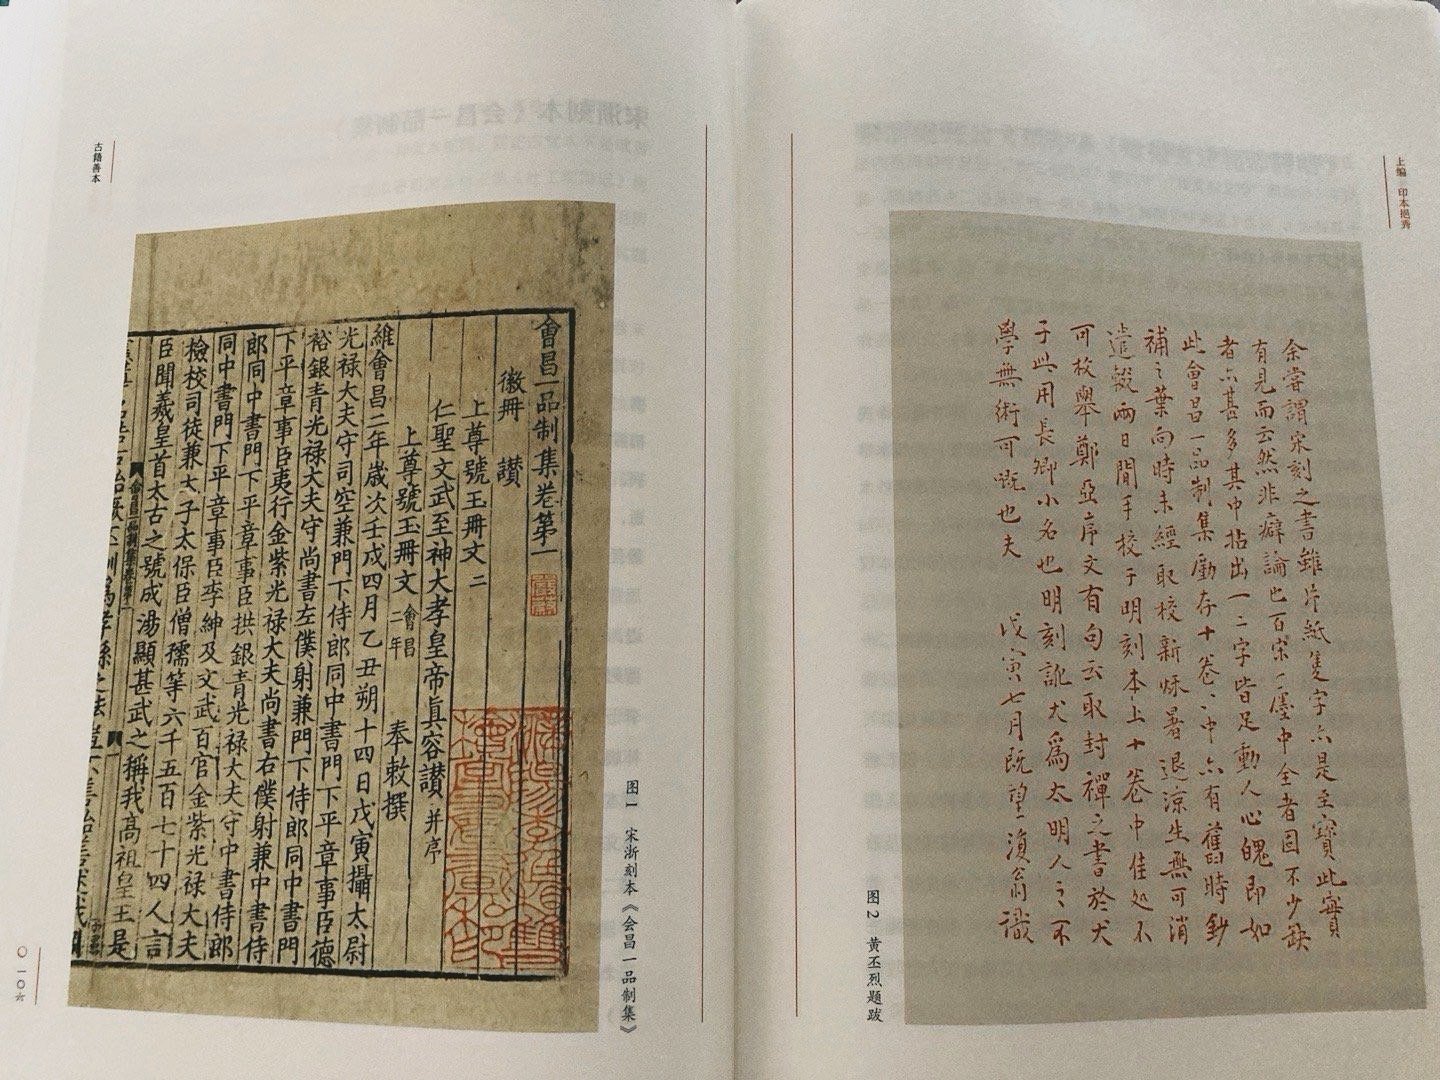 上编 印本挹秀
余嘗謂宋刻之書雖片紙隻字亦是至寶此實
有見而云然非癖論也百宋一廛中全者固不少缺
者亦甚多其中拈出一二字皆足動人心魄即如
此會昌一品制集廑存十卷〻中亦有舊時鈔
補之葉向時未經取校新秌暑退涼生無可消
遣輟兩日閒手校于明刻本上十卷中佳処不
可枚舉鄭亞序文有句云取封禪之書於犬
子此用長卿小名也明刻訛犬爲太明人之不
學無術可嘅也夫 戊寅七月既望復翁識
图2 黄丕烈题跋
古籍善本
會昌一品制集卷第一
徽冊 讃
上尊號玉冊文二
仁聖文武至神大孝皇帝眞容讃并序
上尊號玉冊文 會昌二年 奉敕撰
維會昌二年歲次壬戌四月乙丑朔十四日戊寅攝太尉
光禄大夫守司空兼門下侍郎同中書門下平章事臣德
裕銀青光禄大夫守尚書左僕射兼門下侍郎同中書門
下平章事臣夷行金紫光禄大夫尚書右僕射兼中書侍
郎同中書門下平章事臣拱銀青光禄大夫守中書侍郎
同中書門下平章事臣李紳及文武百官金紫光禄大夫
檢校司徒兼太子太保臣僧孺等六千五百七十四人言
臣聞羲皇首太古之號成湯顯甚武之稱我高祖皇王是
图1 宋浙刻本《会昌一品制集》